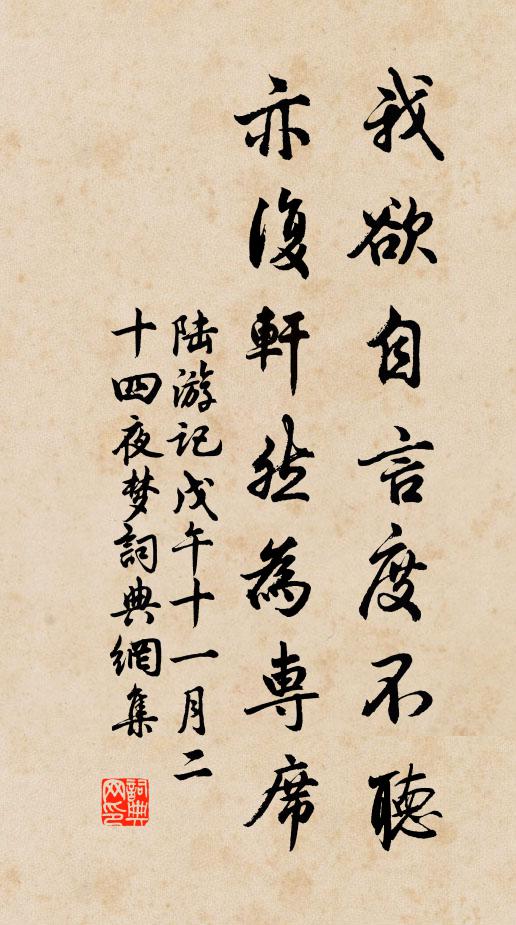 我欲自言度不聽
亦復軒然為專席
陆游记戊午十一月二
十四夜梦詞典網集
詞典网印